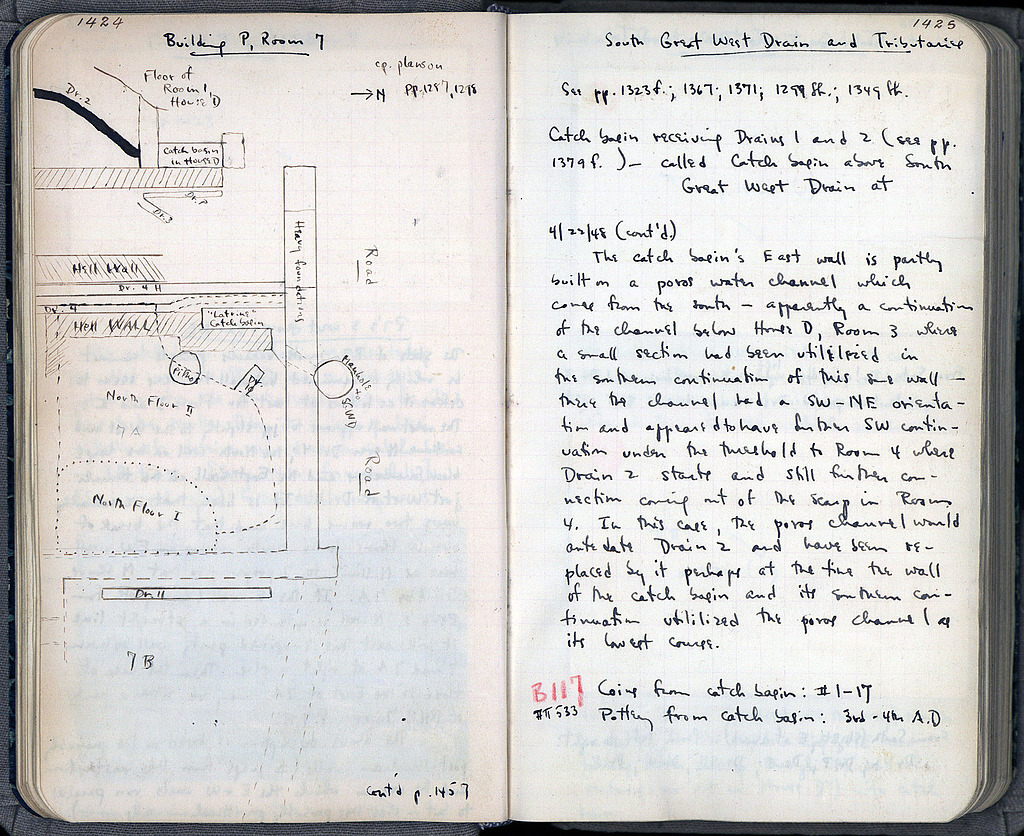 1424
Building P, Room 7
cp. plans on
pp. 1297, 1298
→ N
Floor of
Room 1
House D
Dr. 2
Catch basin
in House D
Dr. P
Dr. 3
Heavy foundations
Road
Hell Wall
Dr. 4 H
Dr. 4
Hell WALL
"Latrine"
Catch basin
Pithos
Dr.
Manhole
S.G.W.D
North Floor II
7 A
Road
North Floor I
Dr. 11
7 B
Cont'd p. 1457
1425
South Great West Drain and Tributaries
See pp. 1323 f.; 1367; 1371; 1299 ff.; 1349 ff.
Catch basin receiving Drains 1 and 2 (see pp.
1379 f. ) — called Catch basin above South
Great West Drain at
4/22/48 (cont'd.)
The catch basin's East wall is partly
built on a poros water channel which
comes from the south — apparently a continuation
of the channel below House D, Room 3 where
a small section had been utilized in
the southern continuation of this same wall —
there the channel had a SW-NE orienta-
tion and appeared to have further SW contin-
uation under the threshold to Room 4 where
Drain 2 starts and still further con-
nection coming out of the scarp in Room
4. In this case, the poros channel would
antedate Drain 2 and have been re-
placed by it perhaps at the time the wall
of the catch basin and its southern con-
tinuation utilized the poros channel as
its lowest course.
B117
Coins from catch basin: #1-17
ΠΠ 533
Pottery from catch basin: 3rd-4th A.D